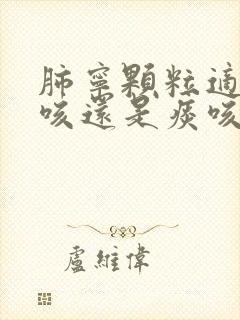 肺寧顆粒適
咳還是痰咳
盧維偉